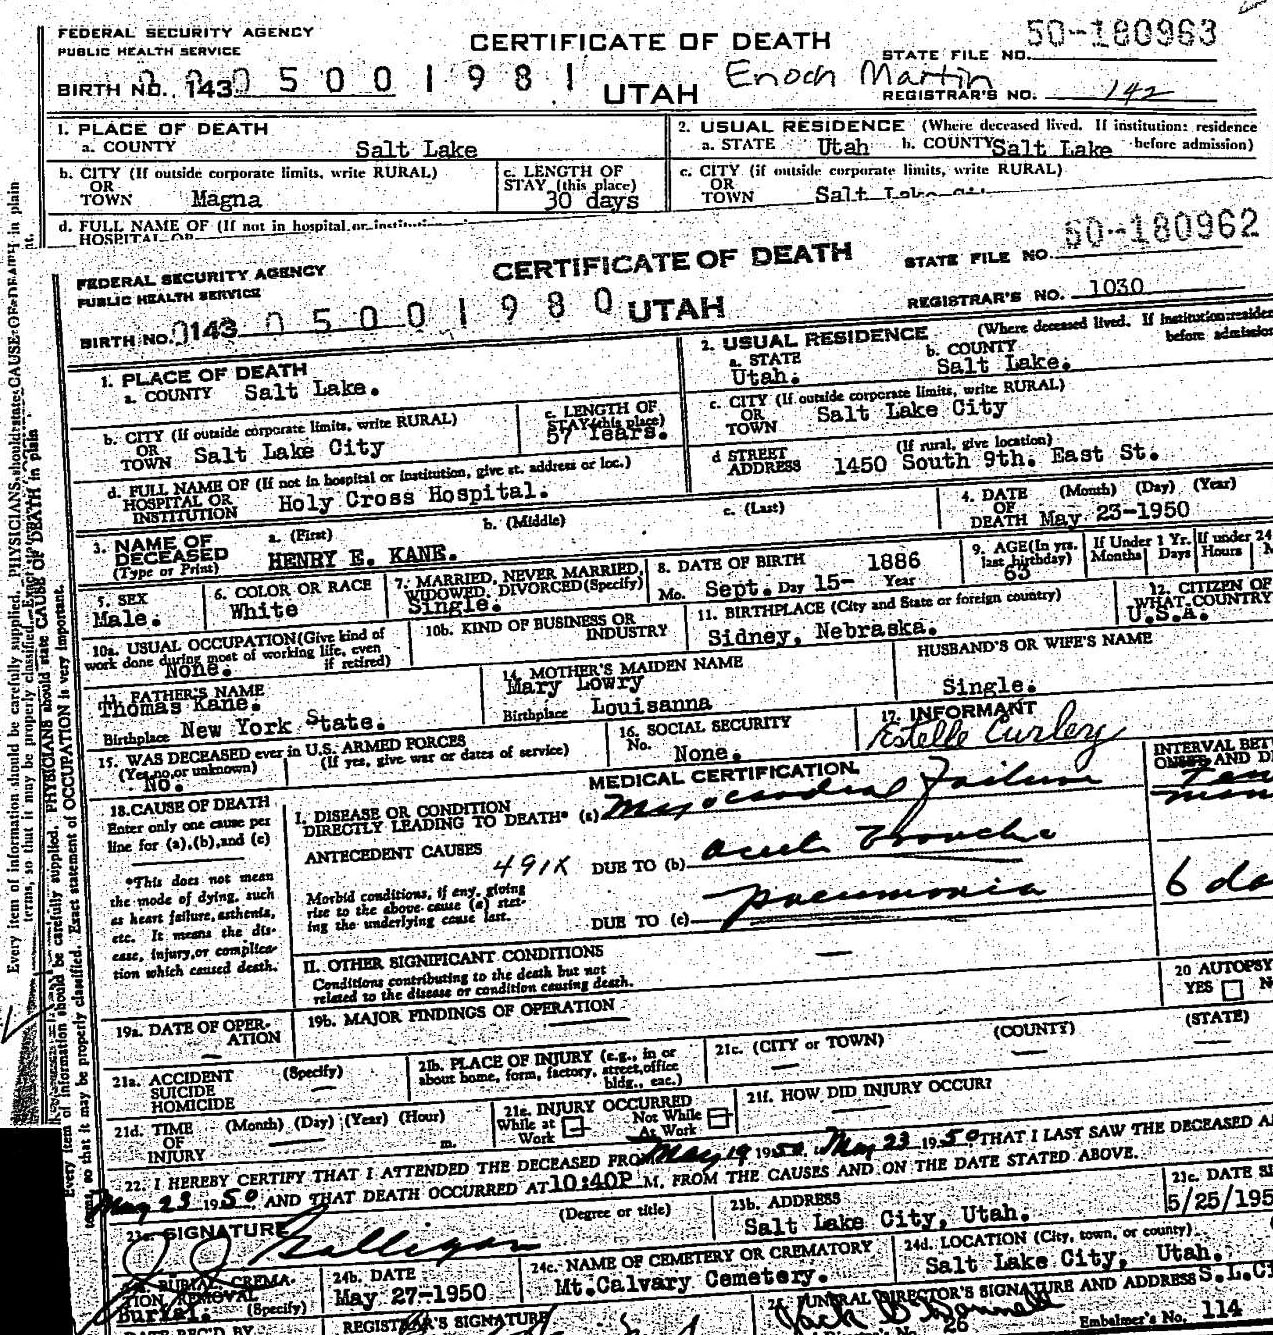 FEDERAL SECURITY AGENCY
PUBLIC HEALTH SERVICE
CERTIFICATE OF DEATH
STATE FILE NO. 50-180963
BIRTH NO. 143 05001981
UTAH
Enoch Martin
REGISTRAR'S NO. 142
1. PLACE OF DEATH
a. COUNTY Salt Lake
2. USUAL RESIDENCE (Where deceased lived. If institution: residence before admission)
a. STATE Utah b. COUNTY Salt Lake
b. CITY (If outside corporate limits, write RURAL)
OR
TOWN Magna
c. LENGTH OF
STAY (this place)
30 days
c. CITY (if outside corporate limits, write RURAL)
OR
TOWN Salt Lake City
d. FULL NAME OF (If not in hospital or
HOSPITAL OR
FEDERAL SECURITY AGENCY
PUBLIC HEALTH SERVICE
CERTIFICATE OF DEATH
STATE FILE NO. 50-180962
BIRTH NO. 143 05001980
UTAH
REGISTRAR'S NO. 1030
1. PLACE OF DEATH
a. COUNTY Salt Lake.
2. USUAL RESIDENCE (Where deceased lived. If institution: resider
before admission
a. STATE
Utah.
b. COUNTY
Salt Lake.
b. CITY (If outside corporate limits, write RURAL)
OR
TOWN Salt Lake City
c. LENGTH OF
STAY (this place)
57 Years.
c. CITY (If outside corporate limits, write RURAL)
OR
TOWN Salt Lake City
d. FULL NAME OF (If not in hospital or institution, give st. address or loc.)
HOSPITAL OR
INSTITUTION Holy Cross Hospital.
d STREET
ADDRESS
(If rural, give location)
1450 South 9th. East St.
3. NAME OF
DECEASED
(Type or Print)
a. (First)
b. (Middle)
c. (Last)
HENRY E. KANE.
4. DATE
OF
DEATH
(Month) (Day) (Year)
May 23-1950
5. SEX
Male.
6. COLOR OR RACE
White
7. MARRIED, NEVER MARRIED,
WIDOWED, DIVORCED (Specify)
Single.
8. DATE OF BIRTH
Mo. Sept. Day 15- 1886 Year
9. AGE (In yrs.
last birthday)
63
If Under 1 Yr.
Months Days
If under 24
Hours
10a. USUAL OCCUPATION (Give kind of
work done during most of working life, even
if retired)
None.
10b. KIND OF BUSINESS OR
INDUSTRY
11. BIRTHPLACE (City and State or foreign country)
Sidney, Nebraska.
12. CITIZEN OF
WHAT COUNTRY
U.S.A.
13. FATHER'S NAME
Thomas Kane.
Birthplace New York State.
14. MOTHER'S MAIDEN NAME
Mary Lowry
Birthplace Louisanna
HUSBAND'S OR WIFE'S NAME
Single.
15. WAS DECEASED ever in U.S. ARMED FORCES
(Yes, no, or unknown) (If yes, give war or dates of service)
No.
16. SOCIAL SECURITY
No. None.
17. INFORMANT
Estelle Curley
MEDICAL CERTIFICATION
INTERVAL BET
ONSET AND D
18. CAUSE OF DEATH
Enter only one cause per
line for (a), (b), and (c)
I. DISEASE OR CONDITION
DIRECTLY LEADING TO DEATH* (a) Myocardial Failure
ANTECEDENT CAUSES
491X
DUE TO (b) acute Broncho
*This does not mean
the mode of dying, such
as heart failure, asthenia,
etc. It means the dis-
ease, injury, or complica-
tion which caused death.
Morbid conditions, if any, giving
rise to the above cause (a) stat-
ing the underlying cause last.
DUE TO (c) pneumonia
6 da
II. OTHER SIGNIFICANT CONDITIONS
Conditions contributing to the death but not
related to the disease or condition causing death.
19a. DATE OF OPER-
ATION
19b. MAJOR FINDINGS OF OPERATION
20 AUTOPSY
YES
21a. ACCIDENT
SUICIDE
HOMICIDE
(Specify)
21b. PLACE OF INJURY (e.g., in or
about home, form, factory, street, office
bldg., eac.)
21c. (CITY or TOWN)
(COUNTY)
(STATE)
21d. TIME
OF
INJURY
(Month) (Day) (Year) (Hour)
m.
21e. INJURY OCCURRED
While at
Work
Not While
At Work
21f. HOW DID INJURY OCCUR?
22. I HEREBY CERTIFY THAT I ATTENDED THE DECEASED FROM May 19 1950, May 23 1950 THAT I LAST SAW THE DECEASED
May 23 1950, AND THAT DEATH OCCURRED AT 10:40P M. FROM THE CAUSES AND ON THE DATE STATED ABOVE.
SIGNATURE
(Degree or title)
23b. ADDRESS
Salt Lake City, Utah.
23c. DATE SI
5/25/195
BURIAL, CREMA-
TION REMOVAL
Burial. (Specify)
24b. DATE
May 27-1950
24c. NAME OF CEMETERY OR CREMATORY
Mt. Calvary Cemetery.
24d. LOCATION (City, town, or county)
Salt Lake City, Utah.
DATE REC'D BY
REGISTRAR'S SIGNATURE
FUNERAL DIRECTOR'S SIGNATURE AND ADDRESS S.L.Ci
26
Embalmer's No. 114
Every item of information should be carefully supplied. PHYSICIANS should state CAUSE OF DEATH in plain
terms, so that it may be properly classified. Exact statement of OCCUPATION is very important.